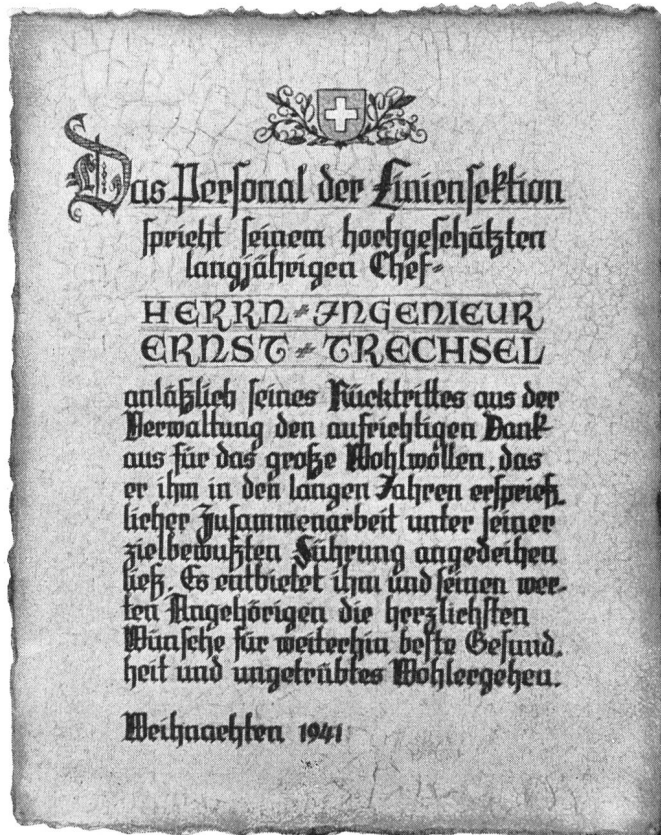 Das Personal der Liniensektion
spricht seinem hochgeschätzten
langjährigen Chef-
HERRN INGENIEUR
ERNST TRECHSEL
anläßlich seines Rücktrittes aus der
Verwaltung den aufrichtigen Dank
aus für das große Wohlwollen, das
er ihm in den langen Jahren ersprieß-
licher Zusammenarbeit unter seiner
zielbewußten Führung angedeihen
ließ. Es entbietet ihm und seinen wer-
ten Angehörigen die herzlichsten
Wünsche für weiterhin beste Gesund-
heit und ungetrübtes Wohlergehen.
Weihnachten 1941